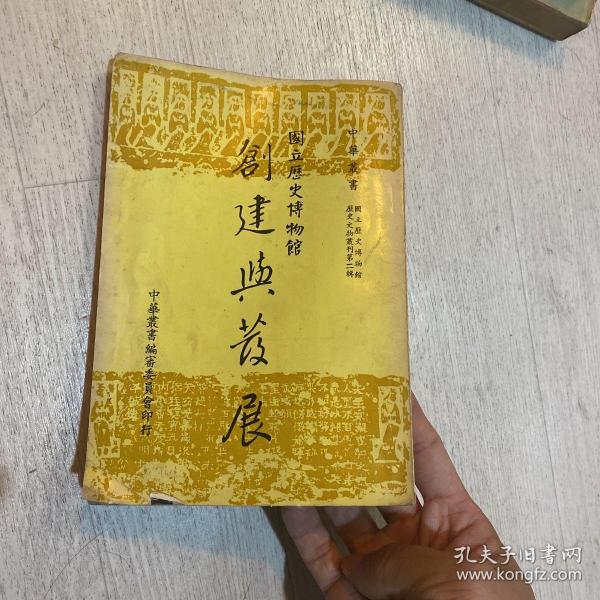 中華叢書
國立歷史博物館
歷史文物叢刊第一輯
國立歷史博物館
創建與發展
中華叢書編審委員會印行
孔夫子旧书网
www.kongfz.com